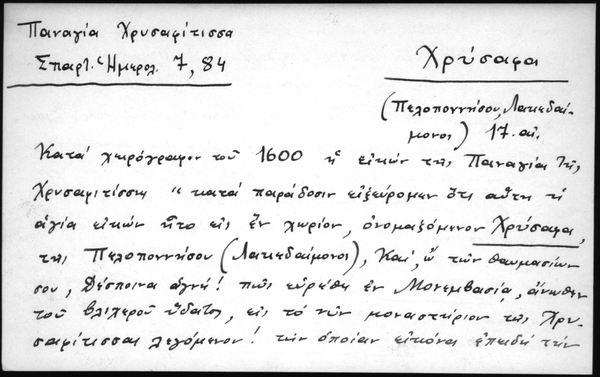 Παναγία Χρυσαφίτισσα
Σπαρτ. Ἡμερολ. 7, 84
Χρύσαφα
(Πελοποννήσου, Λακεδαί-
μονος) 17. αἰ.
Κατά χειρόγραφον τοῦ 1600 ἡ εἰκών τῆς Παναγίας τῆς
Χρυσαφιτίσσης "κατά παράδοσιν εἰξεύρομεν ὅτι αὕτη ἡ
ἁγία εἰκών ἦτο εἰς ἕν χωρίον, ὀνομαζόμενον Χρύσαφα,
τῆς Πελοποννήσου (Λακεδαίμονος), καί, ὤ τῶν θαυμασίων
σου, Δέσποινα ἁγνή! πῶς εὑρέθη ἐν Μονεμβασίᾳ, ἄνωθεν
τοῦ γλυφεροῦ ὕδατος, εἰς τό νῦν μοναστήριον τῆς Χρυ-
σαφιτίσσας λεγόμενον! τήν ὁποίαν εἰκόνα ἐπειδή τήν